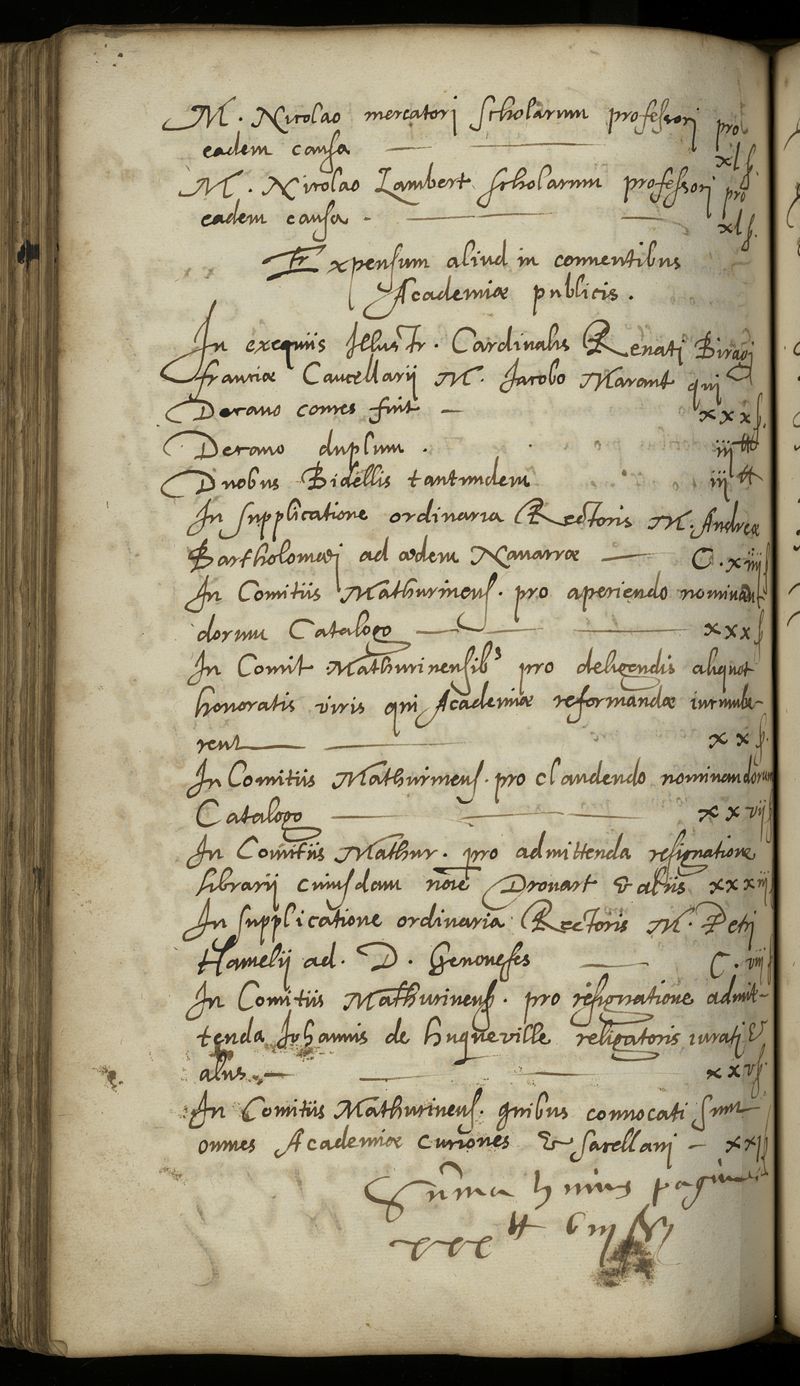 M. Nicolao mercatori scholarum professori pro
eadem causa — xl ß.
M. Nicolao Lambert scholarum professori pro
eadem causa - xl ß.
Expensum aliud in conventibus
Academiæ publicis.
In exequiis Illustr. Cardinalis Renati Biragi
franciæ Cancellarii M. Jacobo Marant qui
Decano comes fuit — xxx ß.
Decano duplum . iii ₶
Duobus Bidellis tantundem iii ₶
In supplicatione ordinaria Rectoris M. Andreæ
Bartholomæi ad ædem Navarræ — C. xiiii ß
In Comitiis Mathurinens. pro aperiendo nominan-
dorum Catalogo — xxx ß
In Comit Mathurinensib⁹ pro deligendis aliquot
honoratis viris qui Academiæ reformandæ incumbe-
rent — xx ß.
In Comitiis Mathurinens. pro claudendo nominandorum
Catalogo — xxvii ß
In Comitiis Mathur. pro admittenda resignatione
librarii cuiusdam noie Drouart & aliis xxxiii ß
In supplicatione ordinaria Rectoris M. Petri
Hamelii ad. D. Genovefes — C. viii ß
In Comitiis Mathurinens. pro resignatione admit-
tenda Johannis de huqueville religatoris iurati &
aliis — xxv ß
In Comitiis Mathurinens. quibus convocati sunt
omnes Academiæ curiones & sacellani — xxj ß
Suma huius paginæ
xxx ₶